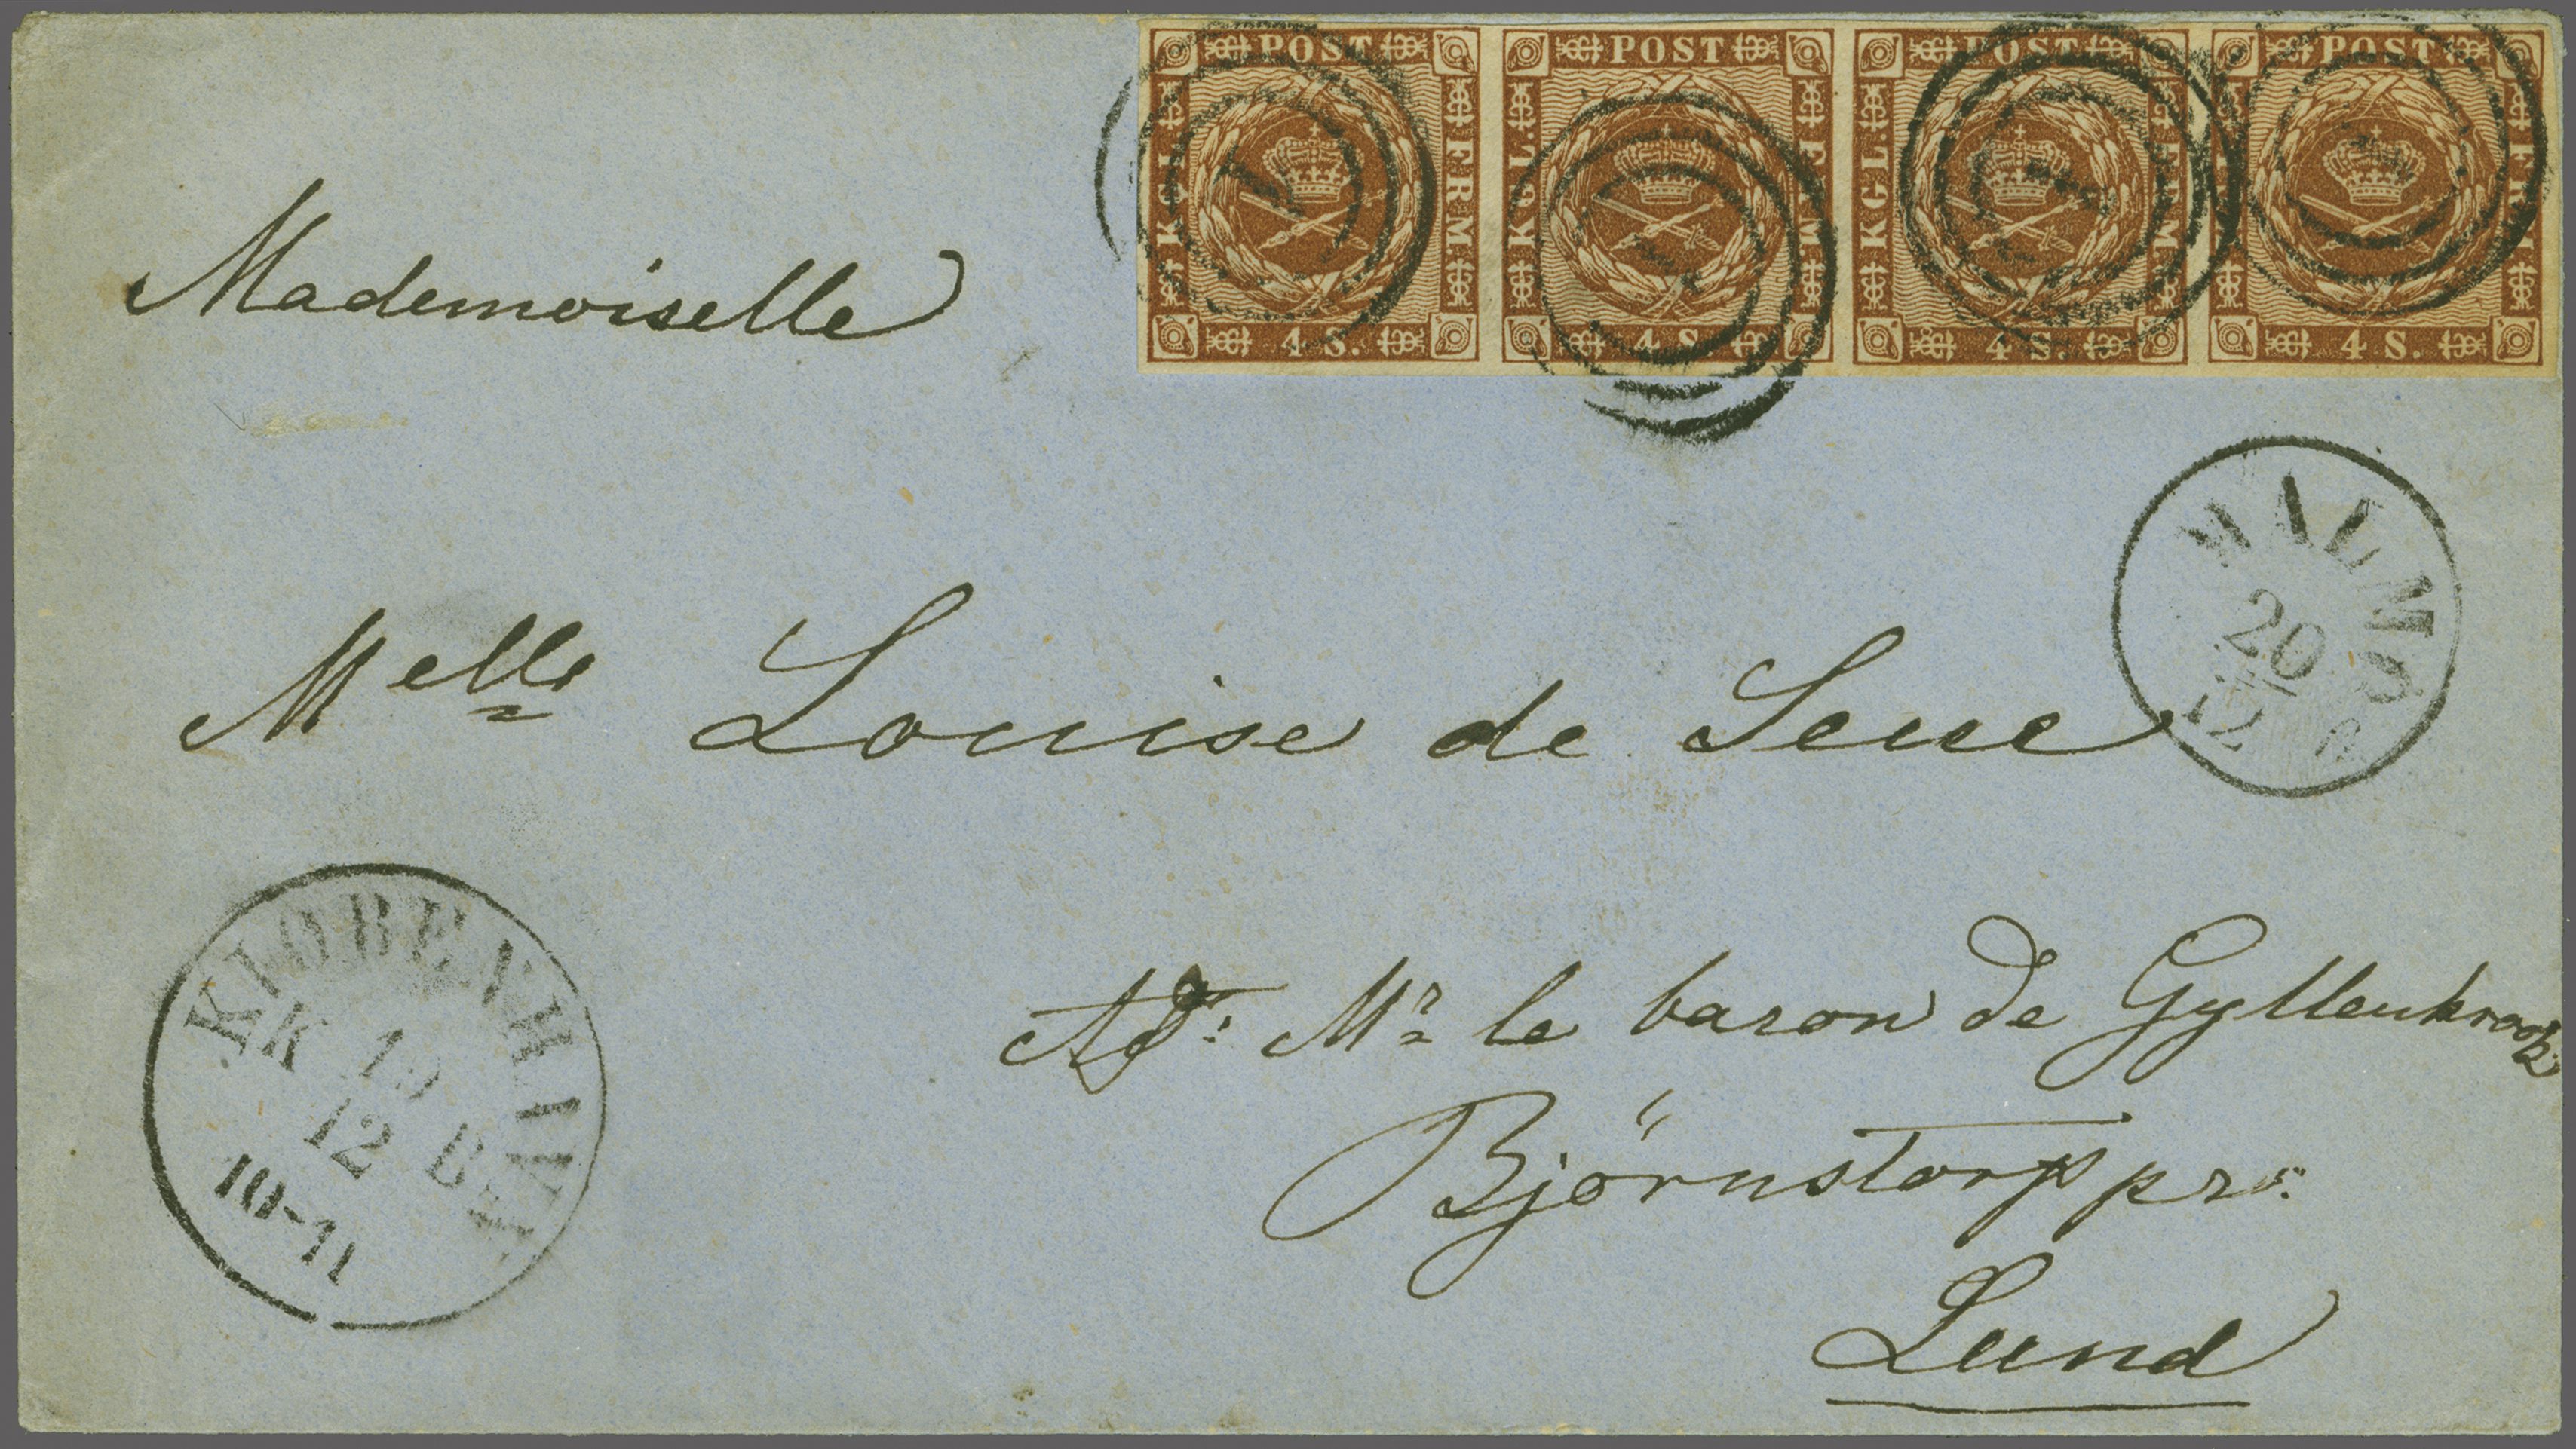 POST POST POST POST
KGL. FRM. KGL. FRM. KGL. FRM. FRM.
4 S. 4 S. 4 S. 4 S.
1 1 1 1
Mademoiselle
MALMÖ
20
12
Melle Louise de Seue
KIØBENHAVN
KK 19 BI
12
10-11
Adr: Mr le baron de Gyllenkrook
Björnstorp pr:
Lund